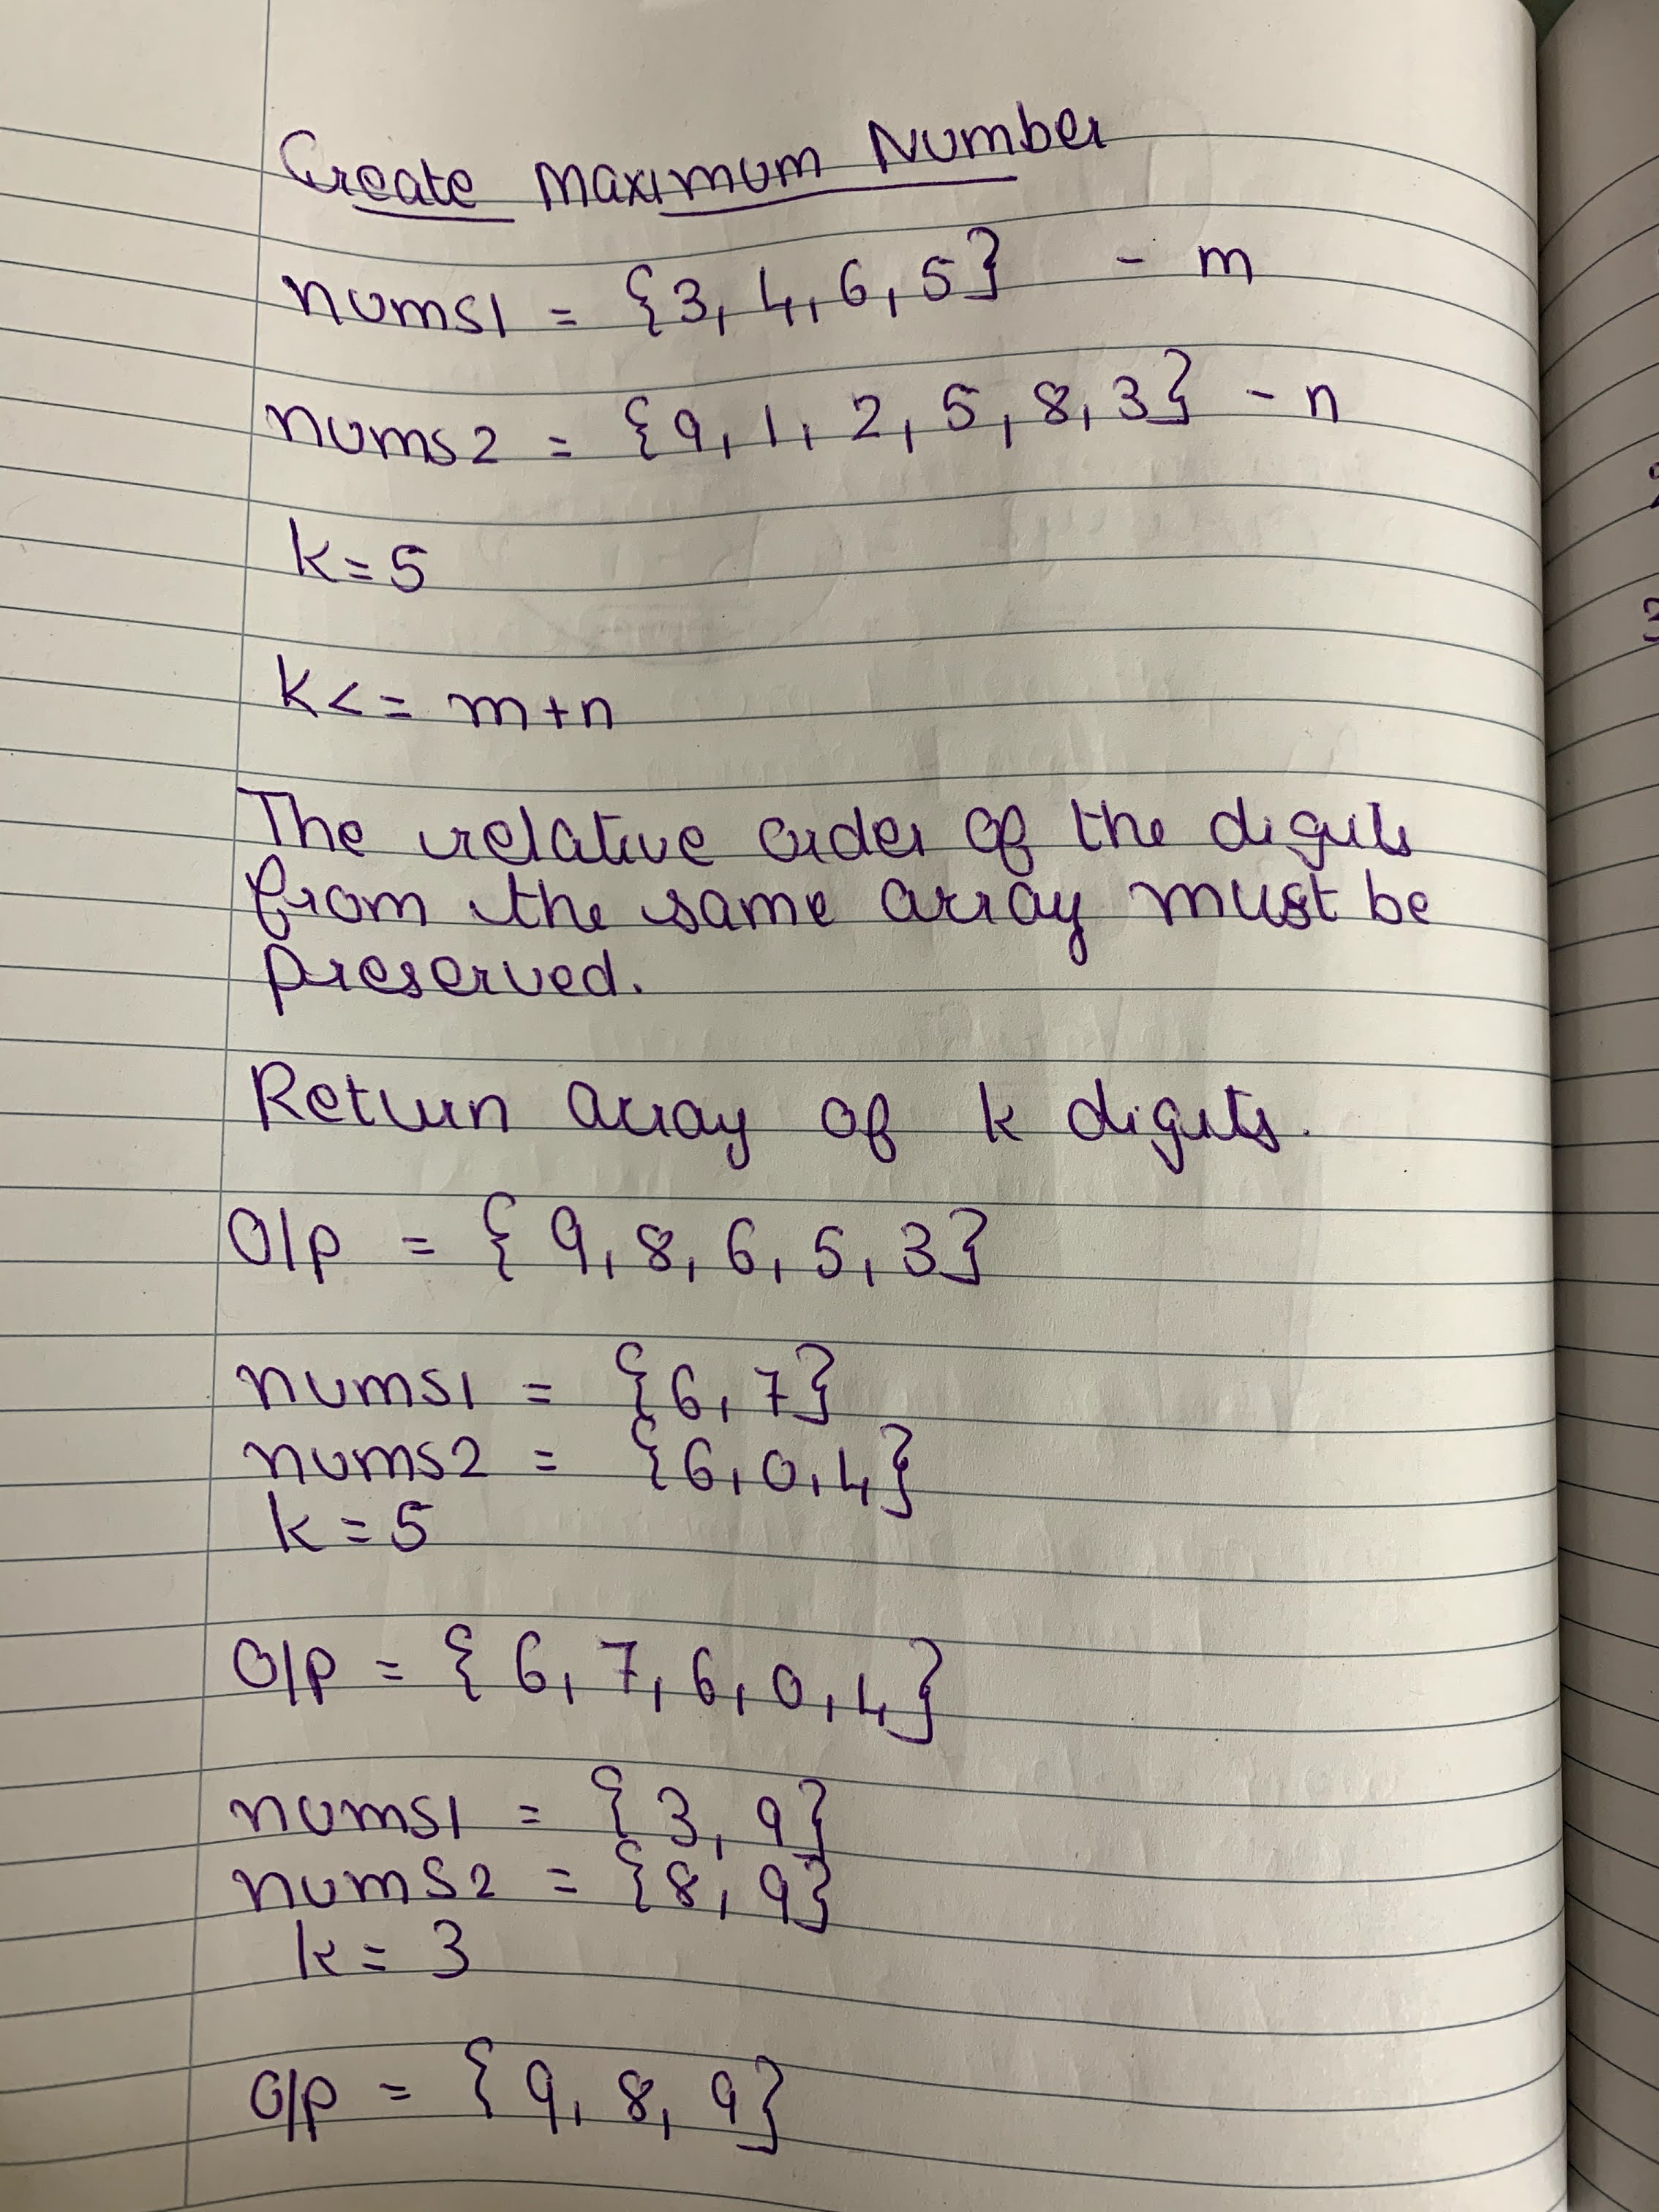 Create Maximum Number
nums1 = {3, 4, 6, 5} - m
nums2 = {9, 1, 2, 5, 8, 3} - n
k = 5
k <= m+n
The relative order of the digits
from the same array must be
preserved.
Return array of k digits.
O/p = { 9, 8, 6, 5, 3}
nums1 = {6, 7}
nums2 = {6, 0, 4}
k = 5
O/p = { 6, 7, 6, 0, 4}
nums1 = { 3, 9}
nums2 = {8, 9}
k = 3
O/p = { 9, 8, 9}